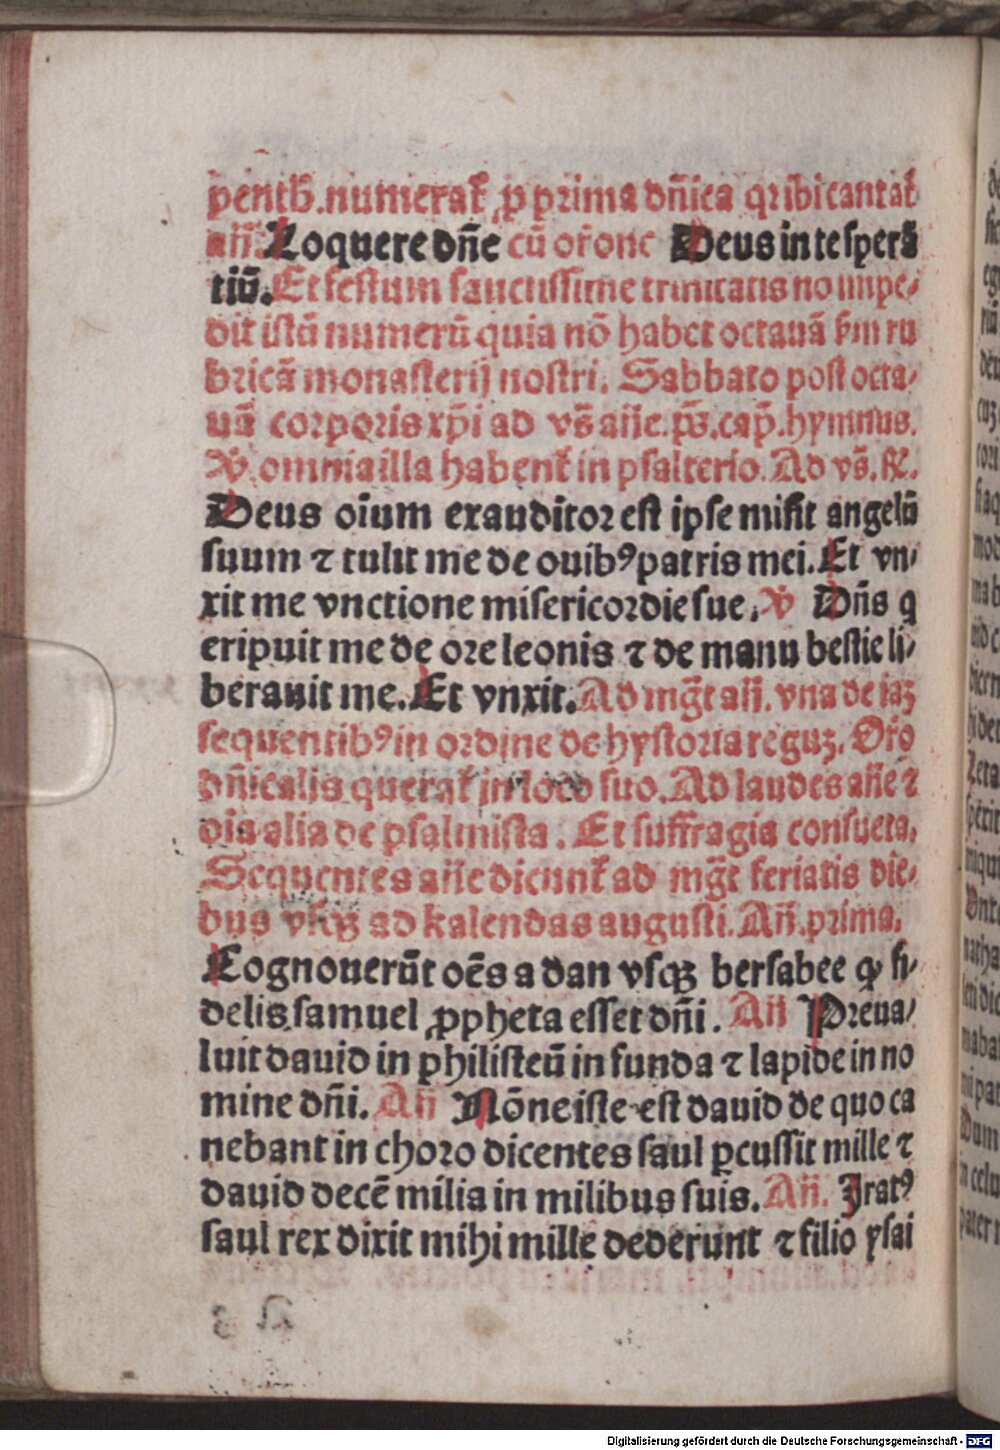 pentħ.numerat᷑ ꝓ prima dn̄ica qn̄ ibi cantat᷑
an̄. Loquere dn̄e cū or̄one Deus in te sperā
tiū. Et festum sanctissime trinitatis nō impe⸗
dit istū numerū quia nō habet octauā ẜm ru
bricā monasterij nostri. Sabbato post octa⸗
uā corporis xp̄i ad vs̄ an̄e. ps̄. cap̄. hymnus.
℣ omnia illa habent᷑ in psalterio. Ad vs̄. R̄.
Deus oīum exauditor est ipse misit angelū
suum ⁊ tulit me de ouibꝰ patris mei. Et vn⸗
xit me vnctione misericordie sue. ℣ Dn̄s q
eripuit me de ore leonis ⁊ de manu bestie li⸗
berauit me. Et vnxit. Ad mḡt an̄. vna de iaꝫ
sequentibꝰ in ordine de hystoria reguꝫ. Or̄o
dn̄icalis querat᷑ in loco suo. Ad laudes an̄e ⁊
oīa alia de psalmista. Et suffragia consueta.
Sequentes an̄e dicunt᷑ ad mḡt feriatis die⸗
bus vsqꝫ ad kalendas augusti. An̄. prima.
Cognouerūt oēs a dan vsqꝫ bersabee ꝙ fi⸗
delis samuel ꝓpheta esset dn̄i. An̄ Preua⸗
luit dauid in philisteū in funda ⁊ lapide in no
mine dn̄i. An̄ Nōne iste est dauid de quo ca
nebant in choro dicentes saul ꝑcussit mille ⁊
dauid decē milia in milibus suis. An̄. Iratꝰ
saul rex dixit mihi mille dederunt ⁊ filio ysai
Digitalisierung gefördert durch die Deutsche Forschungsgemeinschaft - DFG